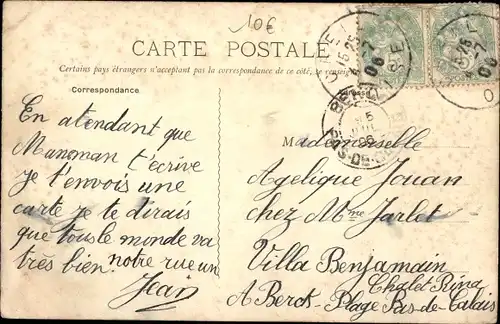 10€
CARTE POSTALE
Certains pays étrangers n'acceptent pas la correspondance de ce côté, se renseigner
Correspondance
En atendant que
Manman t'écrive
Je t'envois une
carte je te dirais
que tous le monde va
très bien. notre rue un
Jean
Mademoiselle
Agelique Jouan
chez Mme Jarlet
Villa Benjamain
Chalet Rina
A Berck-Plage Pas-de-Calais